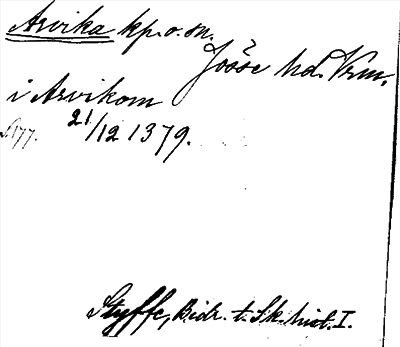 Arvika kp. o. sn.
Jösse hd. Vrm.
i Arvikom
21/12 1379.
s. 177.
Styffe, Bidr. t. Sk. hist. I.